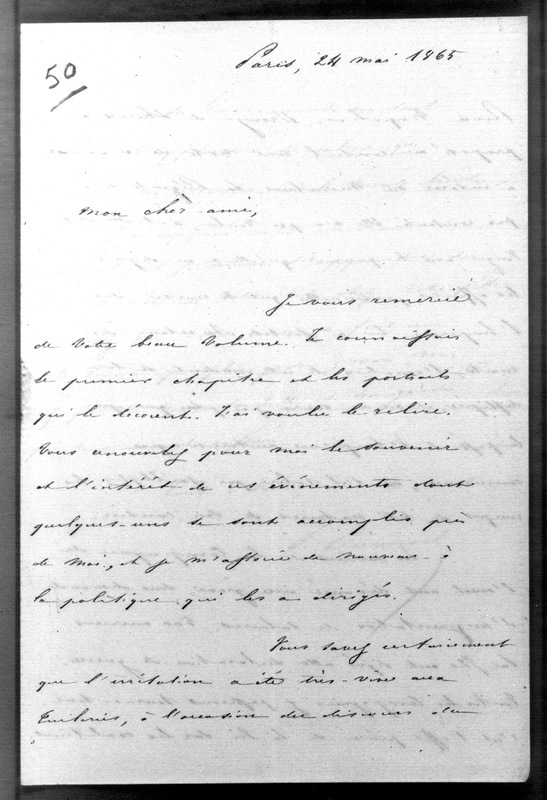 50
Paris, 24 mai 1865
mon cher ami,
Je vous remercie
de votre beau volume. Je connaissais
le premier chapitre et les portraits
qui le décorent. J'ai voulu le relire.
Vous renouvelez pour moi le souvenir
et l'intérêt de ces événements dont
quelques-uns se sont accomplis près
de moi, et je m'associe de nouveau à
la politique qui les a dirigés.
Vous savez certainement
que l'irritation a été très-vive aux
Tuileries, à l'occasion du discours du